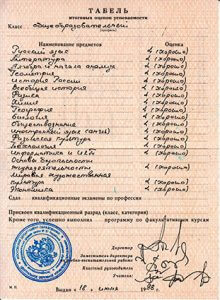 ТАБЕЛЬ
итоговых оценок успеваемости
Класс общеобразовательный
Наименование предметов Оценка
Русский язык 4 (хорошо)
Литература 4 (хорошо)
Алгебра и начала анализа 4 (хорошо)
Геометрия 4 (хорошо)
История России 4 (хорошо)
Всеобщая история 4 (хорошо)
Физика 4 (хорошо)
Химия 4 (хорошо)
География 4 (хорошо)
Биология 4 (хорошо)
Обществознание 4 (хорошо)
Иностранный язык 4 (хорошо)
Физическая культура 4 (хорошо)
Технология 4 (хорошо)
Информатика и 4 (хорошо)
Основы безопасности
жизнедеятельности 4 (хорошо)
Мировая художественная
культура 4 (хорошо)
Экономика 4 (хорошо)
Сдал квалификационные экзамены по профессии
Присвоен квалификационный разряд (класс, категория)
Кроме того, успешно выполнил программу по факультативным курсам
Директор
Заместитель директора
Классный руководитель
Учителя
М. П.
Выдан « 18 » июня